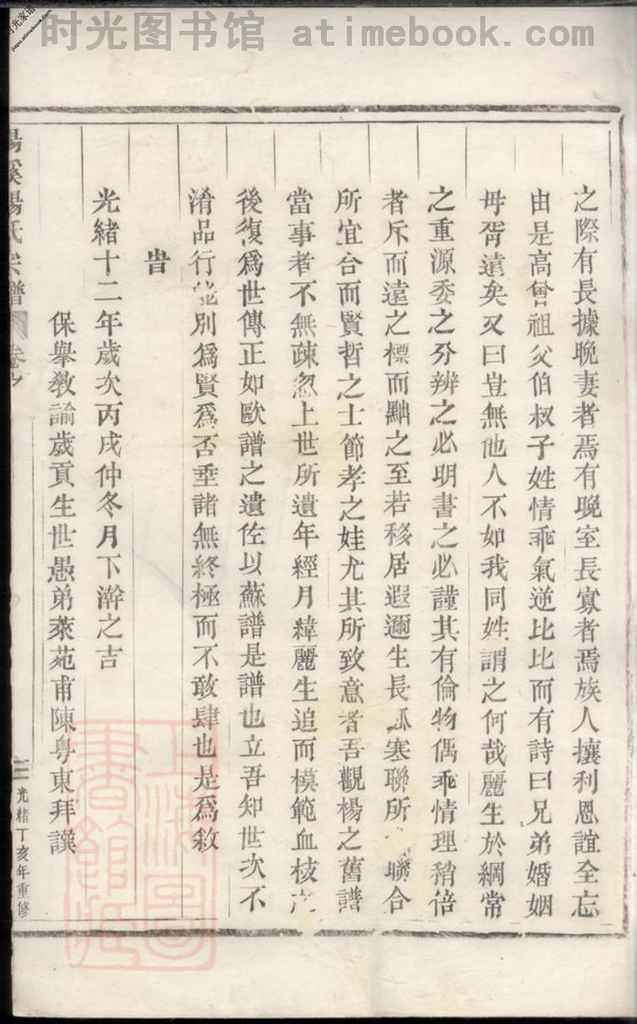 时光图书馆 atimebook.com
之際有長據晚妻者焉有晚室長寡者焉族人攘利恩誼全忘
由是高曾祖父伯叔子姓情乖氣逆比比而有詩曰兄弟婚姻
毋胥遠矣又曰豈無他人不如我同姓謂之何哉麗生於綱常
之重源委之分辨之必明書之必謹其有倫物偶乖情理稍倍
者斥而遠之標而黜之至若移居遐邇生長塞聯所聯合
所宜合而賢哲之士節孝之娃尤其所致意者吾觀楊之舊譜
當事者不無疎忽上世所遺年經月緯麗生追而模範血枝
後復爲世傳正如歐譜之遺佐以蘇譜是譜也立吾知世次不
淆品行能別爲賢爲否垂諸無終極而不敢肆也是爲敘
旹
光緒十二年歲次丙戌仲冬月下澣之吉
保舉教諭歲貢生世愚弟萊苑甫陳粵東拜譔
楊氏宗譜 卷之
三 光緒丁亥年重修